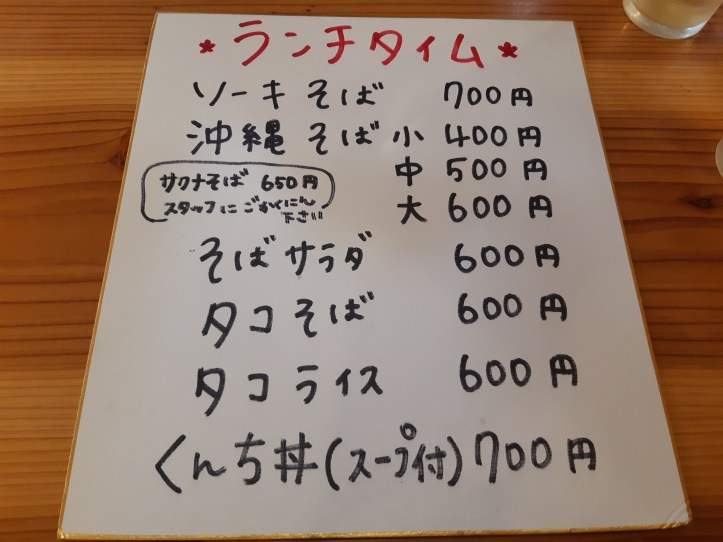 *ランチタイム*
ソーキそば 700円
沖縄そば 小 400円
中 500円
大 600円
サクナそば 650円
スタッフにごかくにん
下さい
そばサラダ 600円
タコそば 600円
タコライス 600円
くんち丼(スープ付)700円